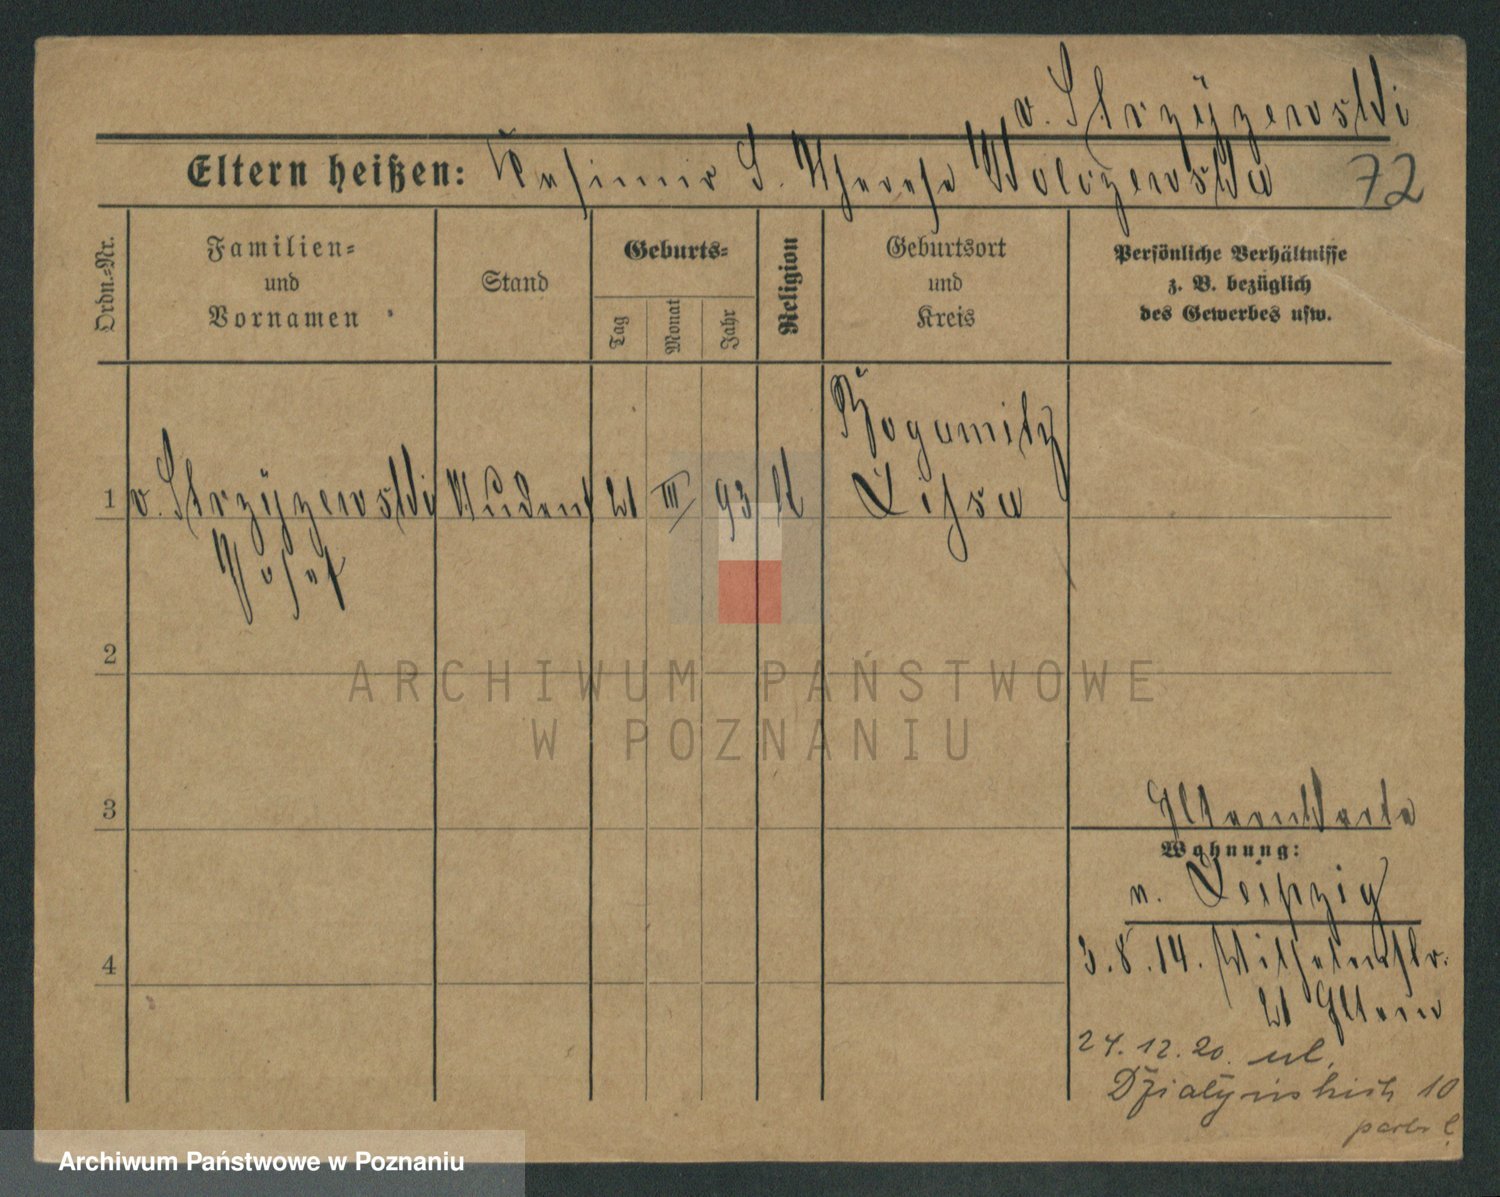 v. Strzyzewski
Eltern heißen: Kasimir S. Therese Woloszewska 72
Ordn.-Nr.
Familien-
und
Vornamen
Stand
Geburts-
Tag
Monat
Jahr
Religion
Geburtsort
und
Kreis
Persönliche Verhältnisse
z. B. bezüglich
des Gewerbes usw.
1 v. Strzyzewski Student 21 III 93 k Bogumilz
Josef Lissa
2
3
4
Elternkarte
Wohnung:
n. Leipzig
3.8.14. Wilhelmstr.
21 Eltern
24.12.20. ul.
Działyńskich 10
parter l.
ARCHIWUM PAŃSTWOWE
W POZNANIU
Archiwum Państwowe w Poznaniu